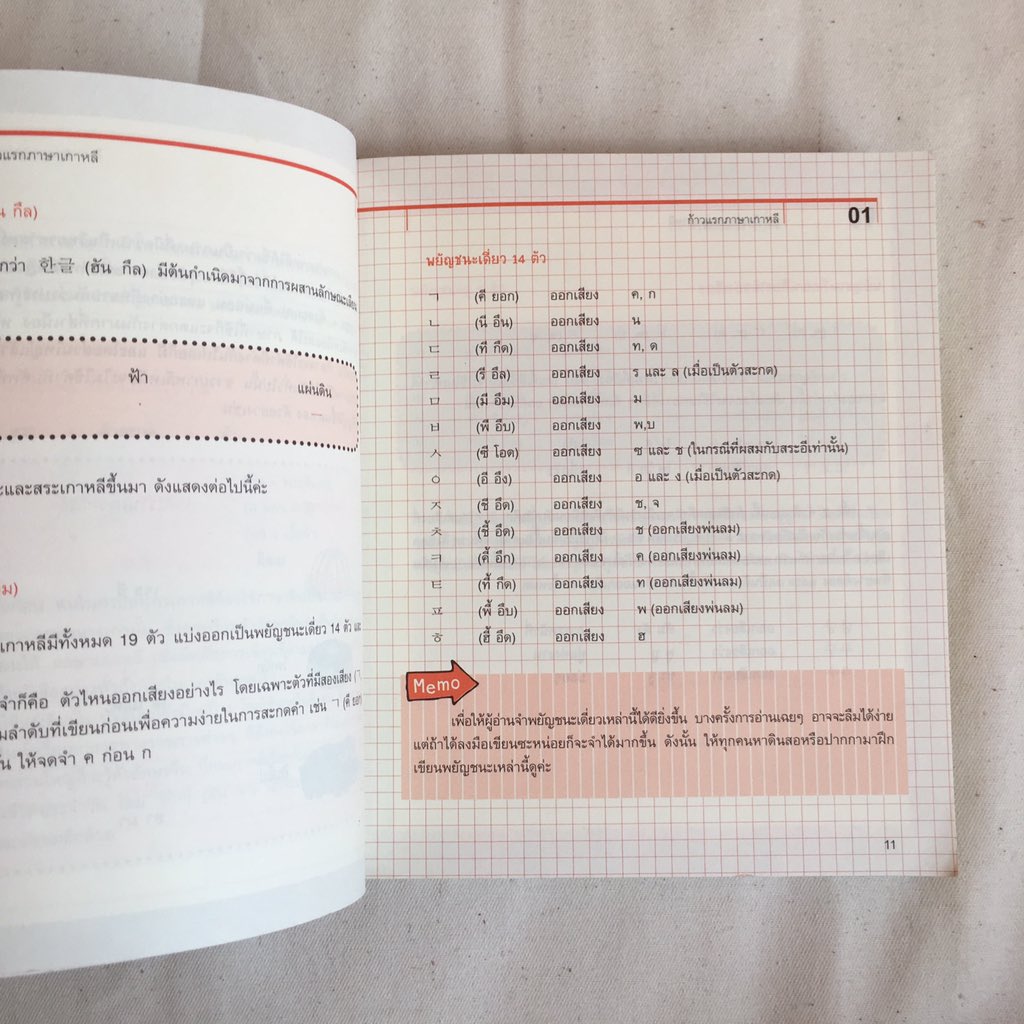 วแรกภาษาเกาหลี
น กึล)
กว่า 한글 (ฮัน กึล) มีต้นกำเนิดมาจากการผสานลักษณะเสียง
ฟ้า
แผ่นดิน
ะและสระเกาหลีขึ้นมา ดังแสดงต่อไปนี้ค่ะ
ม)
เกาหลีมีทั้งหมด 19 ตัว แบ่งออกเป็นพยัญชนะเดี่ยว 14 ตัว และ
จำก็คือ ตัวไหนออกเสียงอย่างไร โดยเฉพาะตัวที่มีสองเสียง
มลำดับที่เขียนก่อนเพื่อความง่ายในการสะกดคำ เช่น ㄱ (คี ยอก)
ั้น ให้จดจำ ค ก่อน ก
ก้าวแรกภาษาเกาหลี 01
พยัญชนะเดี่ยว 14 ตัว
ㄱ (คี ยอก) ออกเสียง ค, ก
ㄴ (นี อึน) ออกเสียง น
ㄷ (ที กึด) ออกเสียง ท, ด
ㄹ (รี อึล) ออกเสียง ร และ ล (เมื่อเป็นตัวสะกด)
ㅁ (มี อึม) ออกเสียง ม
ㅂ (พี อึบ) ออกเสียง พ,บ
ㅅ (ซี โอด) ออกเสียง ซ และ ช (ในกรณีที่ผสมกับสระอีเท่านั้น)
ㅇ (อี อึง) ออกเสียง อ และ ง (เมื่อเป็นตัวสะกด)
ㅈ (ชี อึด) ออกเสียง ช, จ
ㅊ (ชี้ อึด) ออกเสียง ช (ออกเสียงพ่นลม)
ㅋ (คี้ อึก) ออกเสียง ค (ออกเสียงพ่นลม)
ㅌ (ที้ กึด) ออกเสียง ท (ออกเสียงพ่นลม)
ㅍ (พี้ อึบ) ออกเสียง พ (ออกเสียงพ่นลม)
ㅎ (ฮี้ อึด) ออกเสียง ฮ
Memo
เพื่อให้ผู้อ่านจำพยัญชนะเดี่ยวเหล่านี้ได้ดียิ่งขึ้น บางครั้งการอ่านเฉยๆ อาจจะลืมได้ง่าย
แต่ถ้าได้ลงมือเขียนซะหน่อยก็จะจำได้มากขึ้น ดังนั้น ให้ทุกคนหาดินสอหรือปากกามาฝึก
เขียนพยัญชนะเหล่านี้ดูค่ะ
11